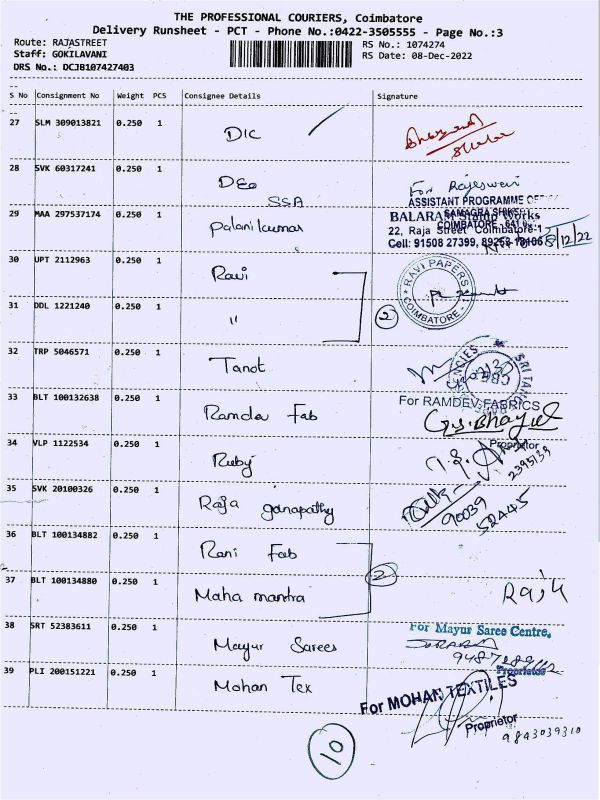 THE PROFESSIONAL COURIERS, Coimbatore
Delivery Runsheet - PCT - Phone No.:0422-3505555 - Page No.:3
Route: RAJASTREET
RS No.: 1074274
Staff: GOKILAVANI
RS Date: 08-Dec-2022
DRS No.: DCJB107427403
S No Consignment No Weight PCS Consignee Details Signature
27 SLM 309013821 0.250 1 DIC
28 SVK 60317241 0.250 1 DEO SSA For Rajeswari
ASSISTANT PROGRAMME
SAMAGRA
COIMBATORE - 641
29 MAA 297537174 0.250 1 Palani kumar
BALARAM Stamp Works
22, Raja Street Coimbatore-1
Cell: 91508 27399,
8/12/22
30 UPT 2112963 0.250 1 Ravi
RAVI PAPERS
COIMBATORE
31 DDL 1221240 0.250 1 "
2
32 TRP 5046571 0.250 1 Tanot
33 BLT 100132638 0.250 1 Ramdev Fab
For RAMDEV FABRICS
Proprietor
34 VLP 1122534 0.250 1 Ruby
2395139
35 SVK 20100326 0.250 1 Raja ganapathy
90039
52445
36 BLT 100134882 0.250 1 Rani Fab
2
37 BLT 100134880 0.250 1 Maha mantra
38 SRT 52383611 0.250 1 Mayur Sarees
For Mayur Saree Centre,
Proprietor
39 PLI 200151221 0.250 1 Mohan Tex
For MOHAN TEXTILES
Proprietor
9843039310
10